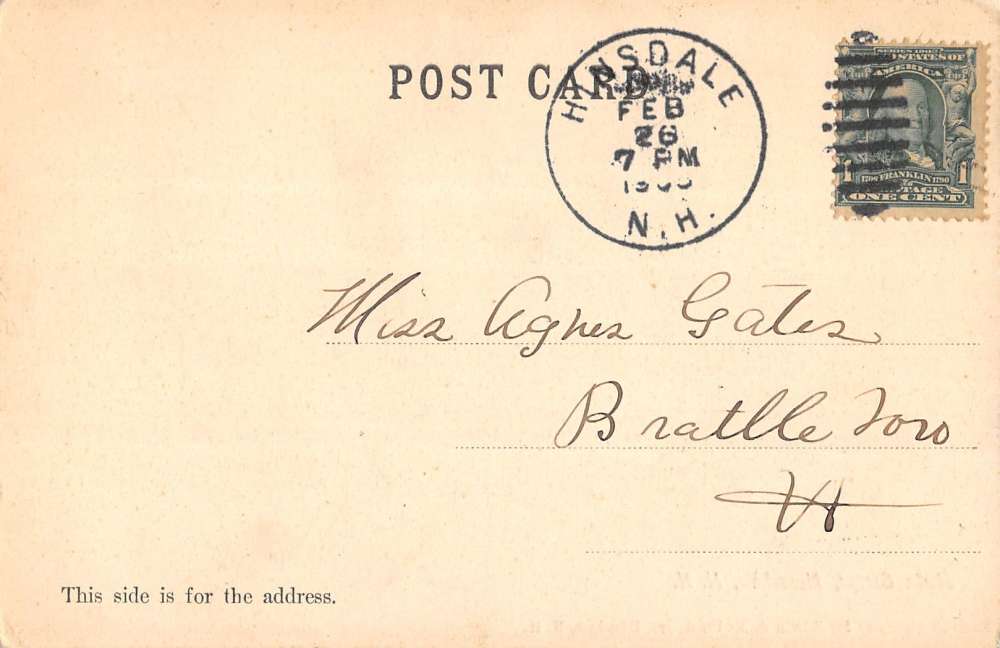 POST CARD
HINSDALE
FEB
26
7 PM
N.H.
SERIES 1902
STATES OF
AMERICA
1 1706 FRANKLIN 1790 1
POSTAGE
ONE CENT
Miss Agnes Gates
Brattle boro
Vt
This side is for the address.